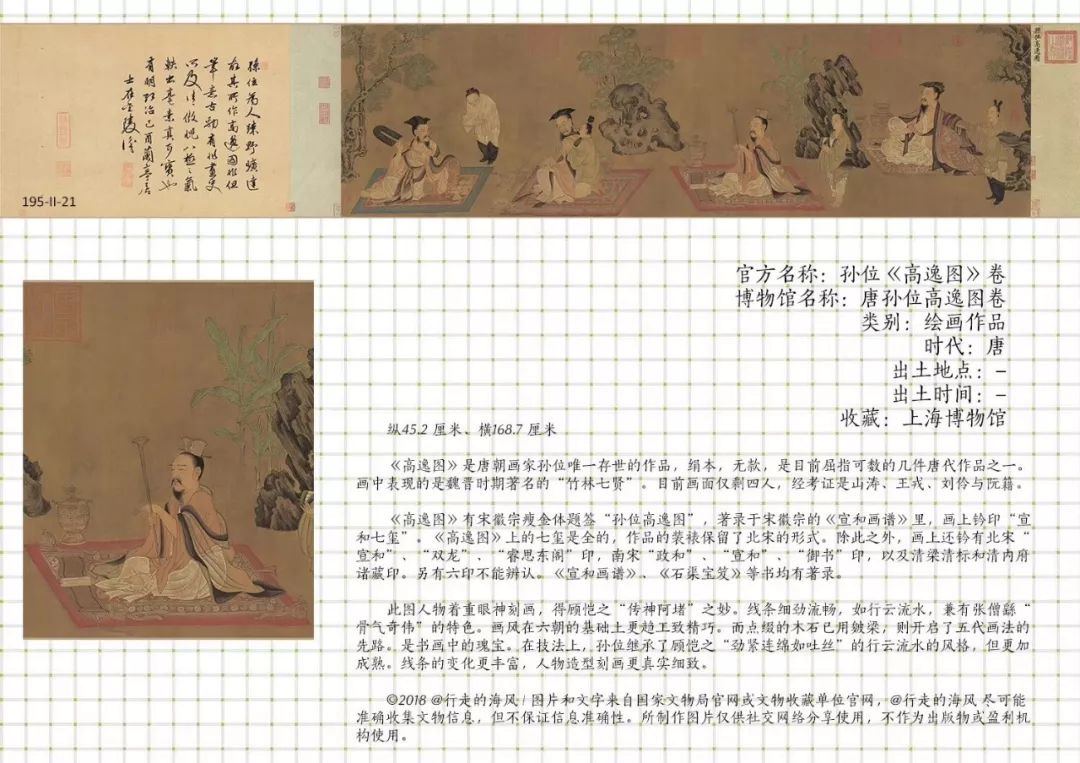 孫位為人疎野曠達
筆意古勁有非畫史
軼出毫素真可寶也
孫位高逸圖
195-II-21
官方名称：孙位《高逸图》卷
博物馆名称：唐孙位高逸图卷
类别：绘画作品
时代：唐
出土地点：–
出土时间：–
收藏：上海博物馆
纵45.2 厘米、横168.7 厘米
《高逸图》是唐朝画家孙位唯一存世的作品，绢本，无款，是目前屈指可数的几件唐代作品之一。
画中表现的是魏晋时期著名的“竹林七贤”。目前画面仅剩四人，经考证是山涛、王戎、刘伶与阮籍。
《高逸图》有宋徽宗瘦金体题签“孙位高逸图”，著录于宋徽宗的《宣和画谱》里，画上钤印“宣
和七玺”。《高逸图》上的七玺是全的，作品的装裱保留了北宋的形式。除此之外，画上还钤有北宋“
宣和”、“双龙”、“睿思东阁”印，南宋“政和”、“宣和”、“御书”印，以及清梁清标和清内府
诸藏印。另有六印不能辨认。《宣和画谱》、《石渠宝笈》等书均有著录。
此图人物着重眼神刻画，得顾恺之“传神阿堵”之妙。线条细劲流畅，如行云流水，兼有张僧繇“
骨气奇伟”的特色。画风在六朝的基础上更趋工致精巧。而点缀的木石已用皴染，则开启了五代画法的
先路。是书画中的瑰宝。在技法上，孙位继承了顾恺之“劲紧连绵如吐丝”的行云流水的风格，但更加
成熟。线条的变化更丰富，人物造型刻画更真实细致。
©2018 @行走的海风 / 图片和文字来自国家文物局官网或文物收藏单位官网，@行走的海风 尽可能
准确收集文物信息，但不保证信息准确性。所制作图片仅供社交网络分享使用，不作为出版物或盈利机
构使用。